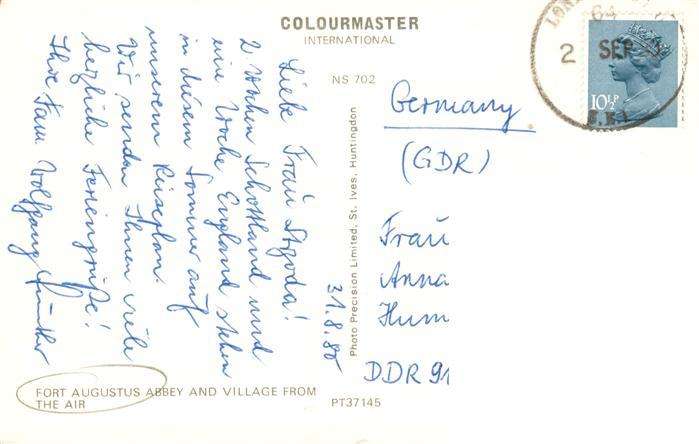 COLOURMASTER
INTERNATIONAL
NS 702
Liebe Frau
2 Wochen Schottland und
eine Woche England stehen
in diesem Sommer auf
unserem Reiseplan.
Wir senden Ihnen viele
herzliche Feriengrüße!
Ihre Fam. Wolfgang Günther
31.8.80
Photo Precision Limited, St. Ives, Huntingdon
64
2 SEP
10½P
Germany
(GDR)
Frau
Anna
Hum
DDR 91
FORT AUGUSTUS ABBEY AND VILLAGE FROM
THE AIR
PT37145